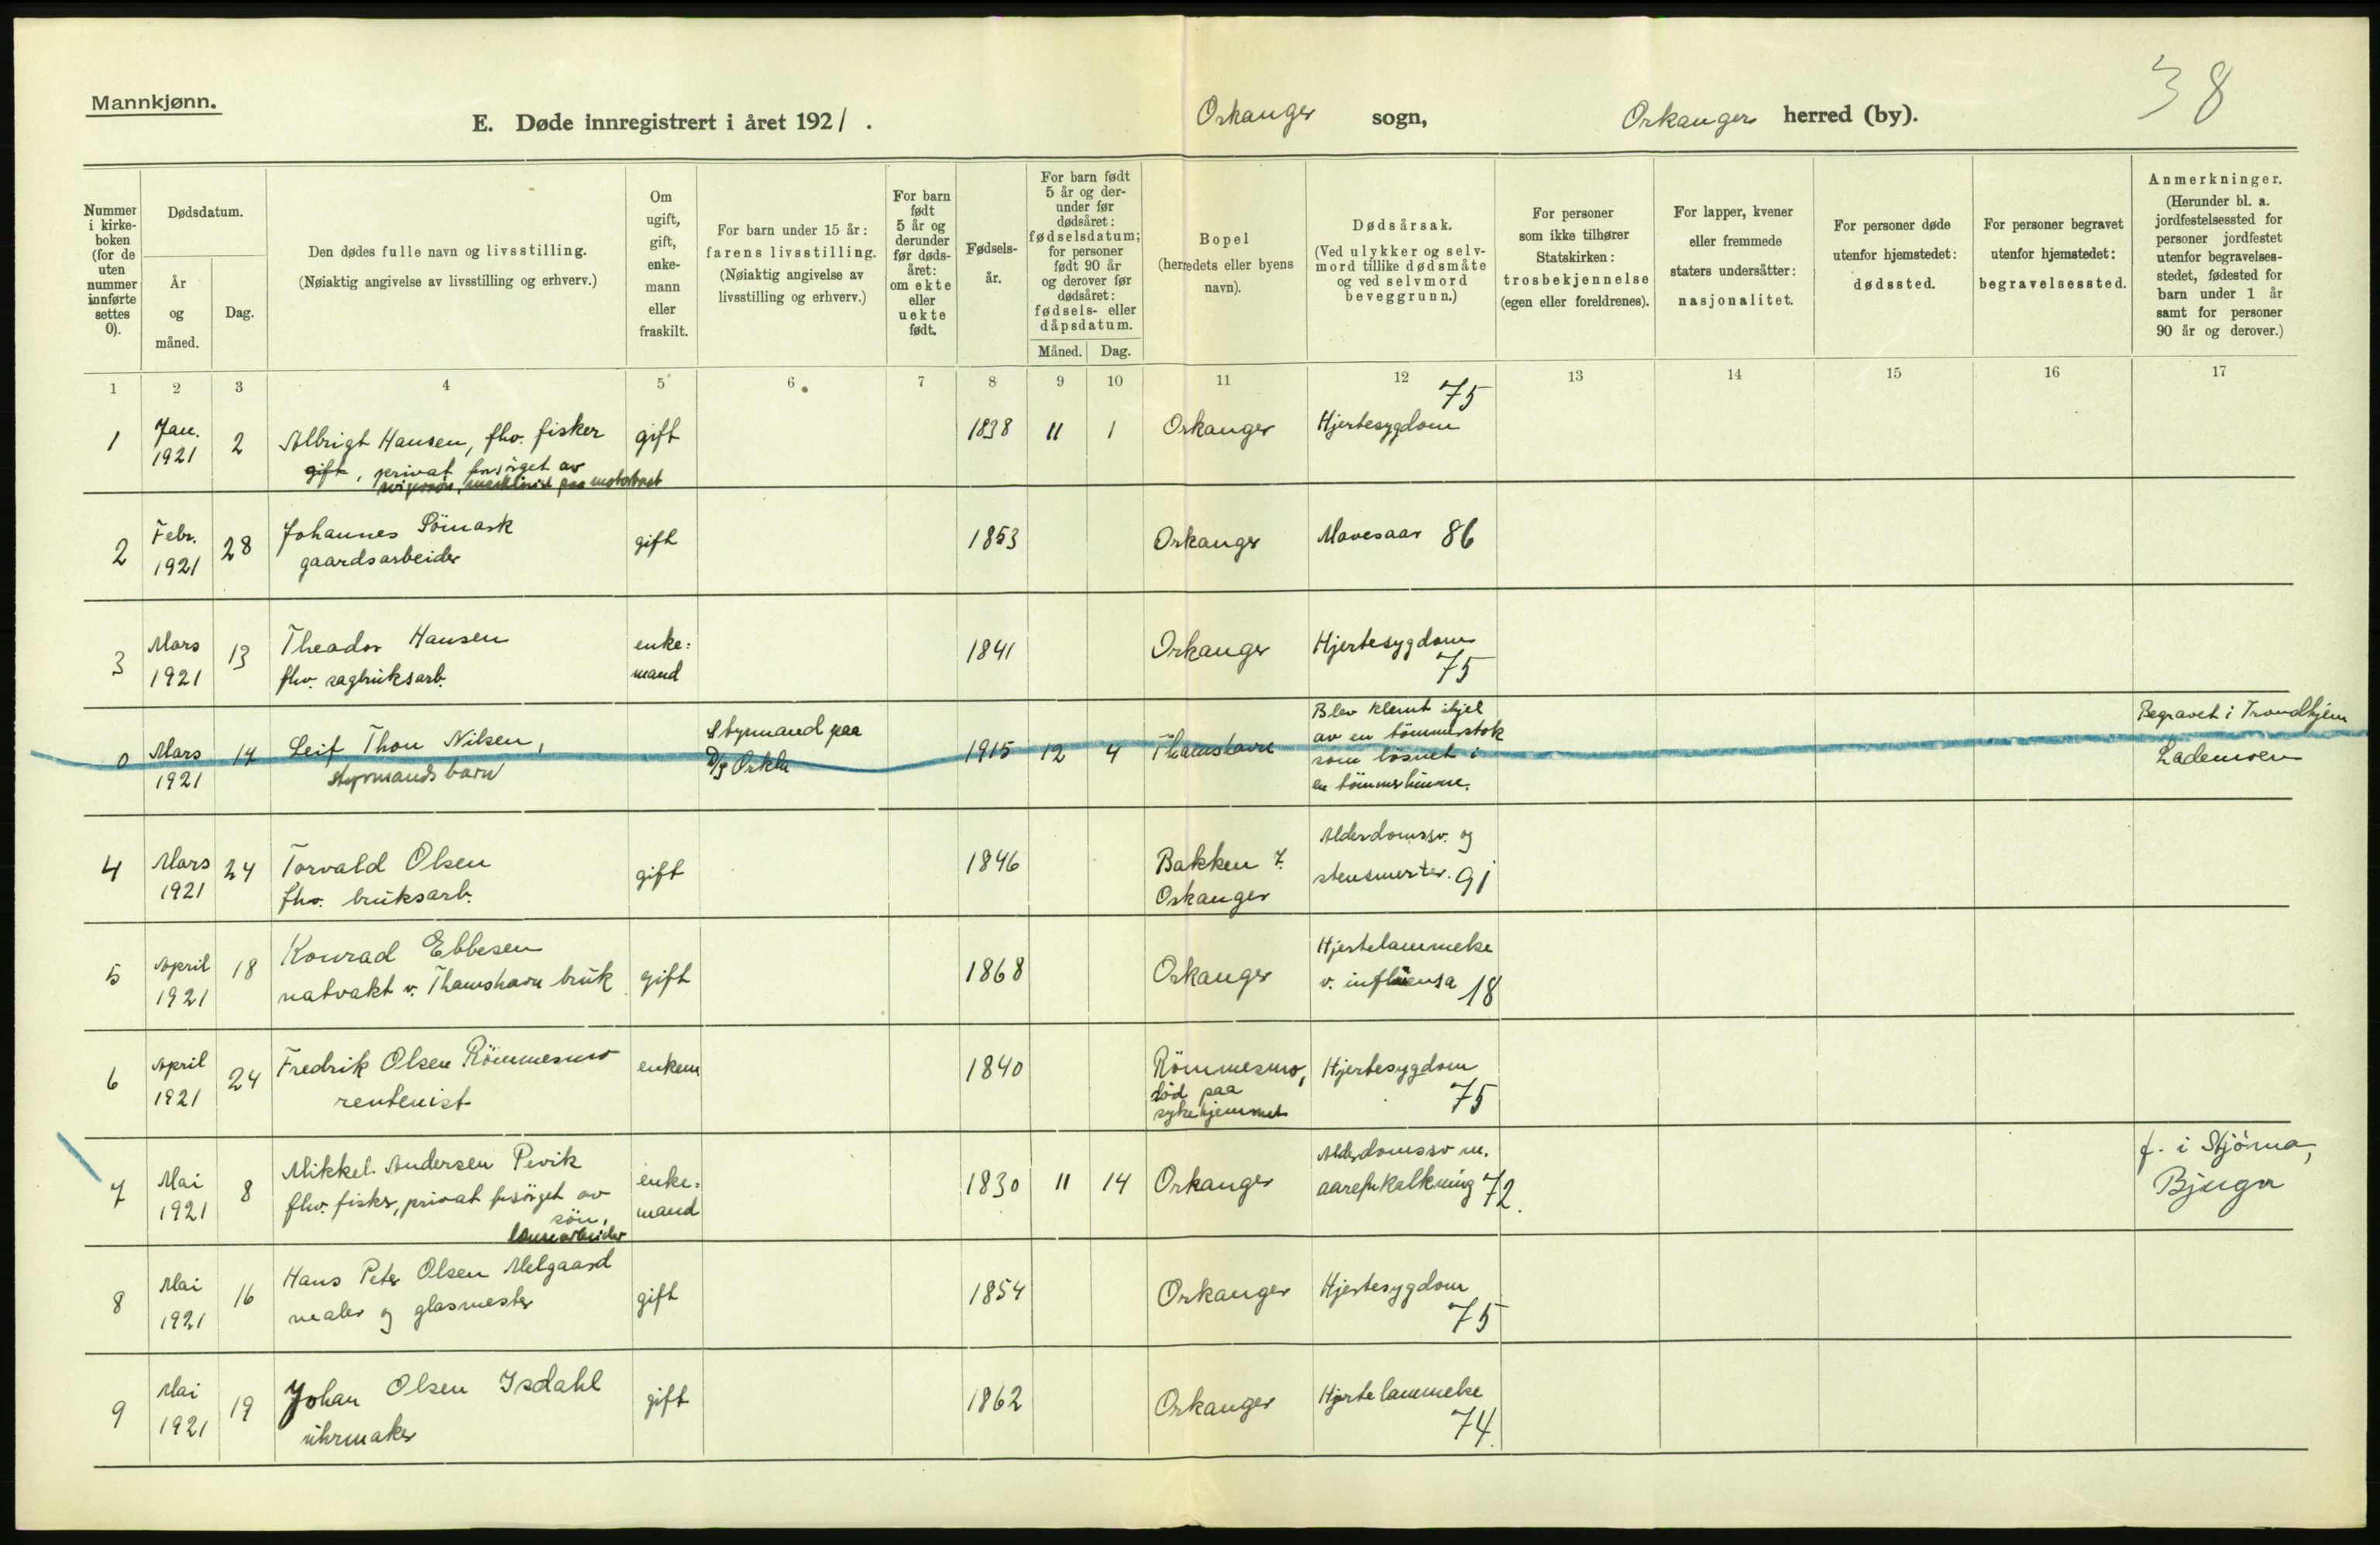 38
Mannkjønn.
E. Døde innregistrert i året 1921.
Orkanger sogn,
Orkanger herred (by).
Nummer i kirkeboken (for de uten nummer innførte settes 0).
Dødsdatum.
År og måned.
Dag.
Den dødes fulle navn og livsstilling.
(Nøiaktig angivelse av livsstilling og erhverv.)
Om ugift, gift, enkemann eller fraskilt.
For barn under 15 år: farens livsstilling.
(Nøiaktig angivelse av livsstilling og erhverv.)
For barn født 5 år og derunder før dødsåret: om ekte eller uekte født.
Fødselsår.
For barn født 5 år og derunder før dødsåret: fødselsdatum; for personer født 90 år og derover før dødsåret: fødsels- eller dåpsdatum.
Måned. Dag.
Bopel
(herredets eller byens navn).
Dødsårsak.
(Ved ulykker og selvmord tillike dødsmåte og ved selvmord beveggrunn.)
For personer som ikke tilhører Statskirken: trosbekjennelse (egen eller foreldrenes).
For lapper, kvener eller fremmede staters undersåtter: nasjonalitet.
For personer døde utenfor hjemstedet: dødssted.
For personer begravet utenfor hjemstedet: begravelsessted.
Anmerkninger.
(Herunder bl. a. jordfestelsessted for personer jordfestet utenfor begravelsesstedet, fødested for barn under 1 år samt for personer 90 år og derover.)
1 2 3 4 5 6 7 8 9 10 11 12 13 14 15 16 17
1 Jan. 1921 2 Albrigt Hansen, fhv. fisker gift 1838 11 1 Orkanger Hjertesygdom 75
gift, privat forsörget av
maskinist paa motorbaat
2 Febr. 1921 28 Johannes Sömark gift 1853 Orkanger Mavesaar 86
gaardsarbeider
3 Mars 1921 13 Theador Hansen enke=mand 1841 Orkanger Hjertesygdom 75
fhv. sagbruksarb.
0 Mars 1921 14 Leif Thon Nilsen, Styrmand paa D/S Orkla 1915 12 4 Thamshavn Blev klemt ihjel av en tömmerstok som losnet i en Begravet i Trondhjem Lademoen
styrmands barn
4 Mars 1921 24 Torvald Olsen gift 1846 Bakken 7. Orkanger Alderdomssv. og stensmerter. 91
fhv. bruksarb.
5 April 1921 18 Konrad Ebbesen gift 1868 Orkanger Hjertelammelse v. influensa 18
natvakt v. Thamshavn bruk
6 April 1921 24 Fredrik Olsen Römmesmo enkem 1840 Römmesmo, död paa sykehjemmet Hjertesygdom 75
rentenist
7 Mai 1921 8 Mikkel Andersen Pevik enke=mand 1830 11 14 Orkanger Alderdomssv m. aareforkalkning 72. f. i Stjörna, Bjugn
fhv. fisker, privat forsörget av
sön,
8 Mai 1921 16 Hans Peter Olsen Melgaard gift 1854 Orkanger Hjertesygdom 75
maler og glasmester
9 Mai 1921 19 Johan Olsen Isdahl gift 1862 Orkanger Hjertelammelse 74.
uhrmaker